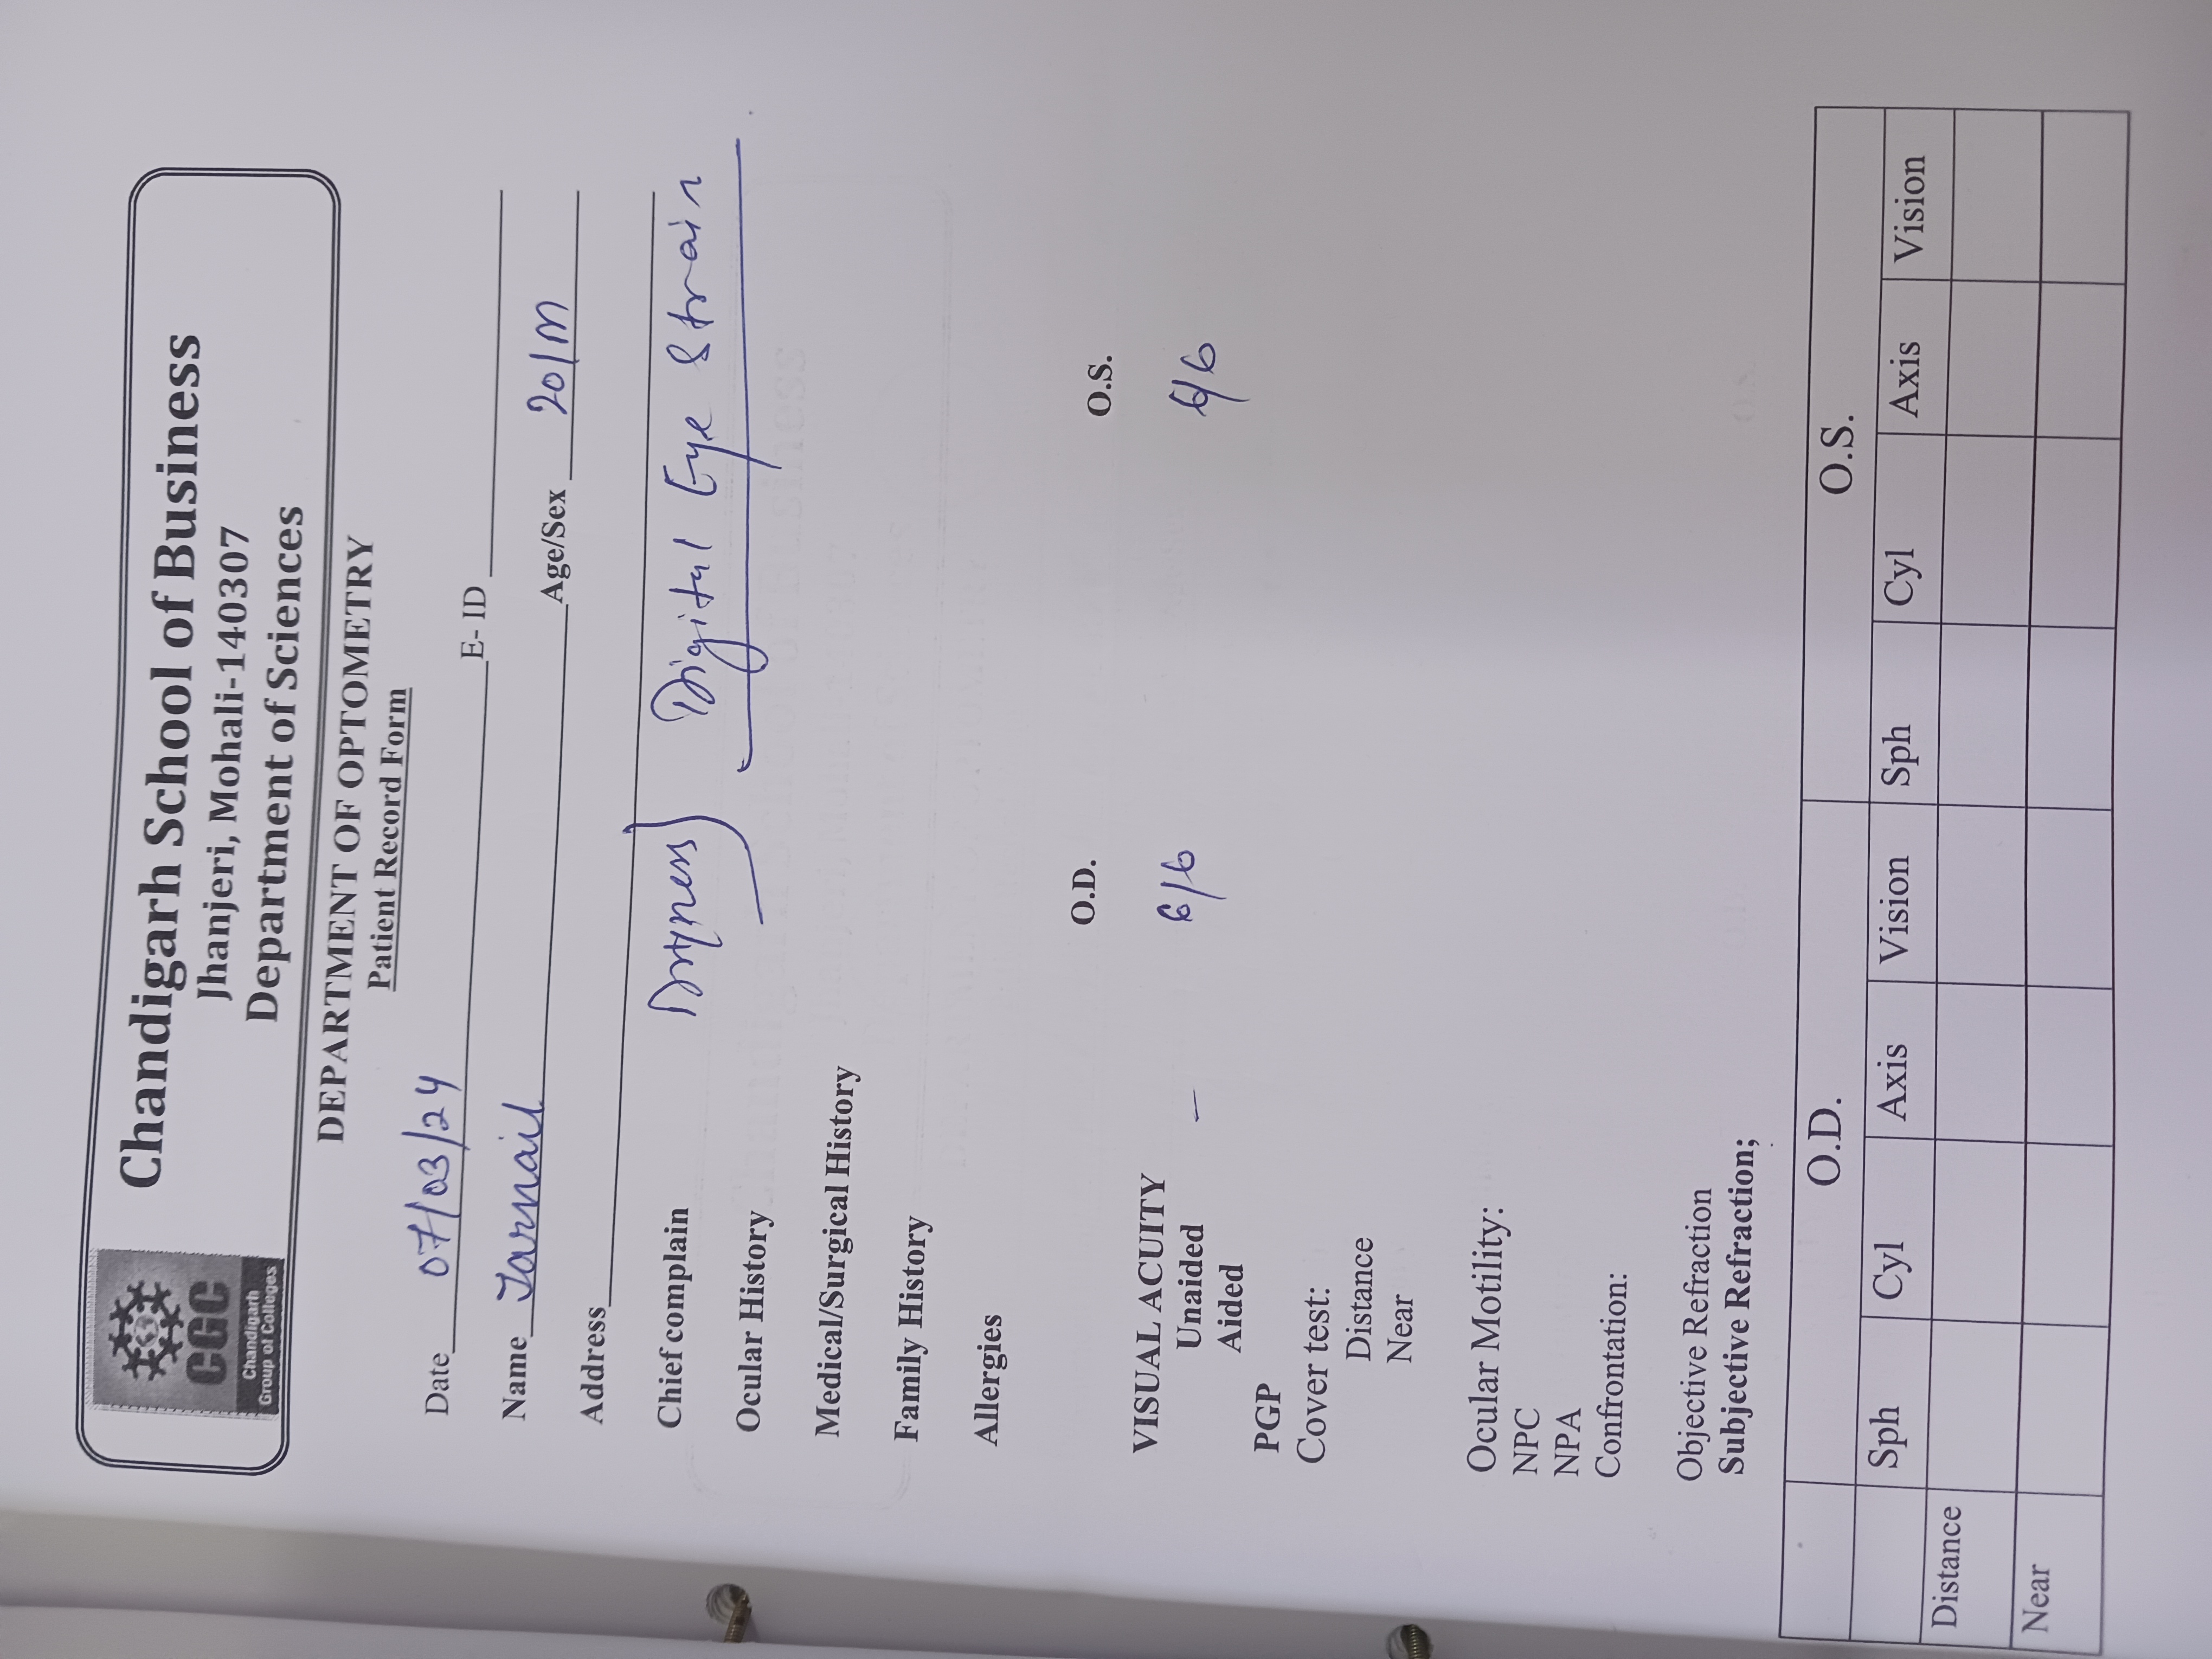 CGC
Chandigarh
Group of Colleges
Chandigarh School of Business
Jhanjeri, Mohali-140307
Department of Sciences
DEPARTMENT OF OPTOMETRY
Patient Record Form
Date 07/03/24 E- ID
Name Jarnail Age/Sex 20/M
Address
Chief complain Dryness Digital Eye Strain
Ocular History
Medical/Surgical History
Family History
Allergies
O.D. O.S.
VISUAL ACUITY
Unaided – 6/6 6/6
Aided
PGP
Cover test:
Distance
Near
Ocular Motility:
NPC
NPA
Confrontation:
Objective Refraction
Subjective Refraction;
O.D. O.S.
Sph Cyl Axis Vision Sph Cyl Axis Vision
Distance
Near